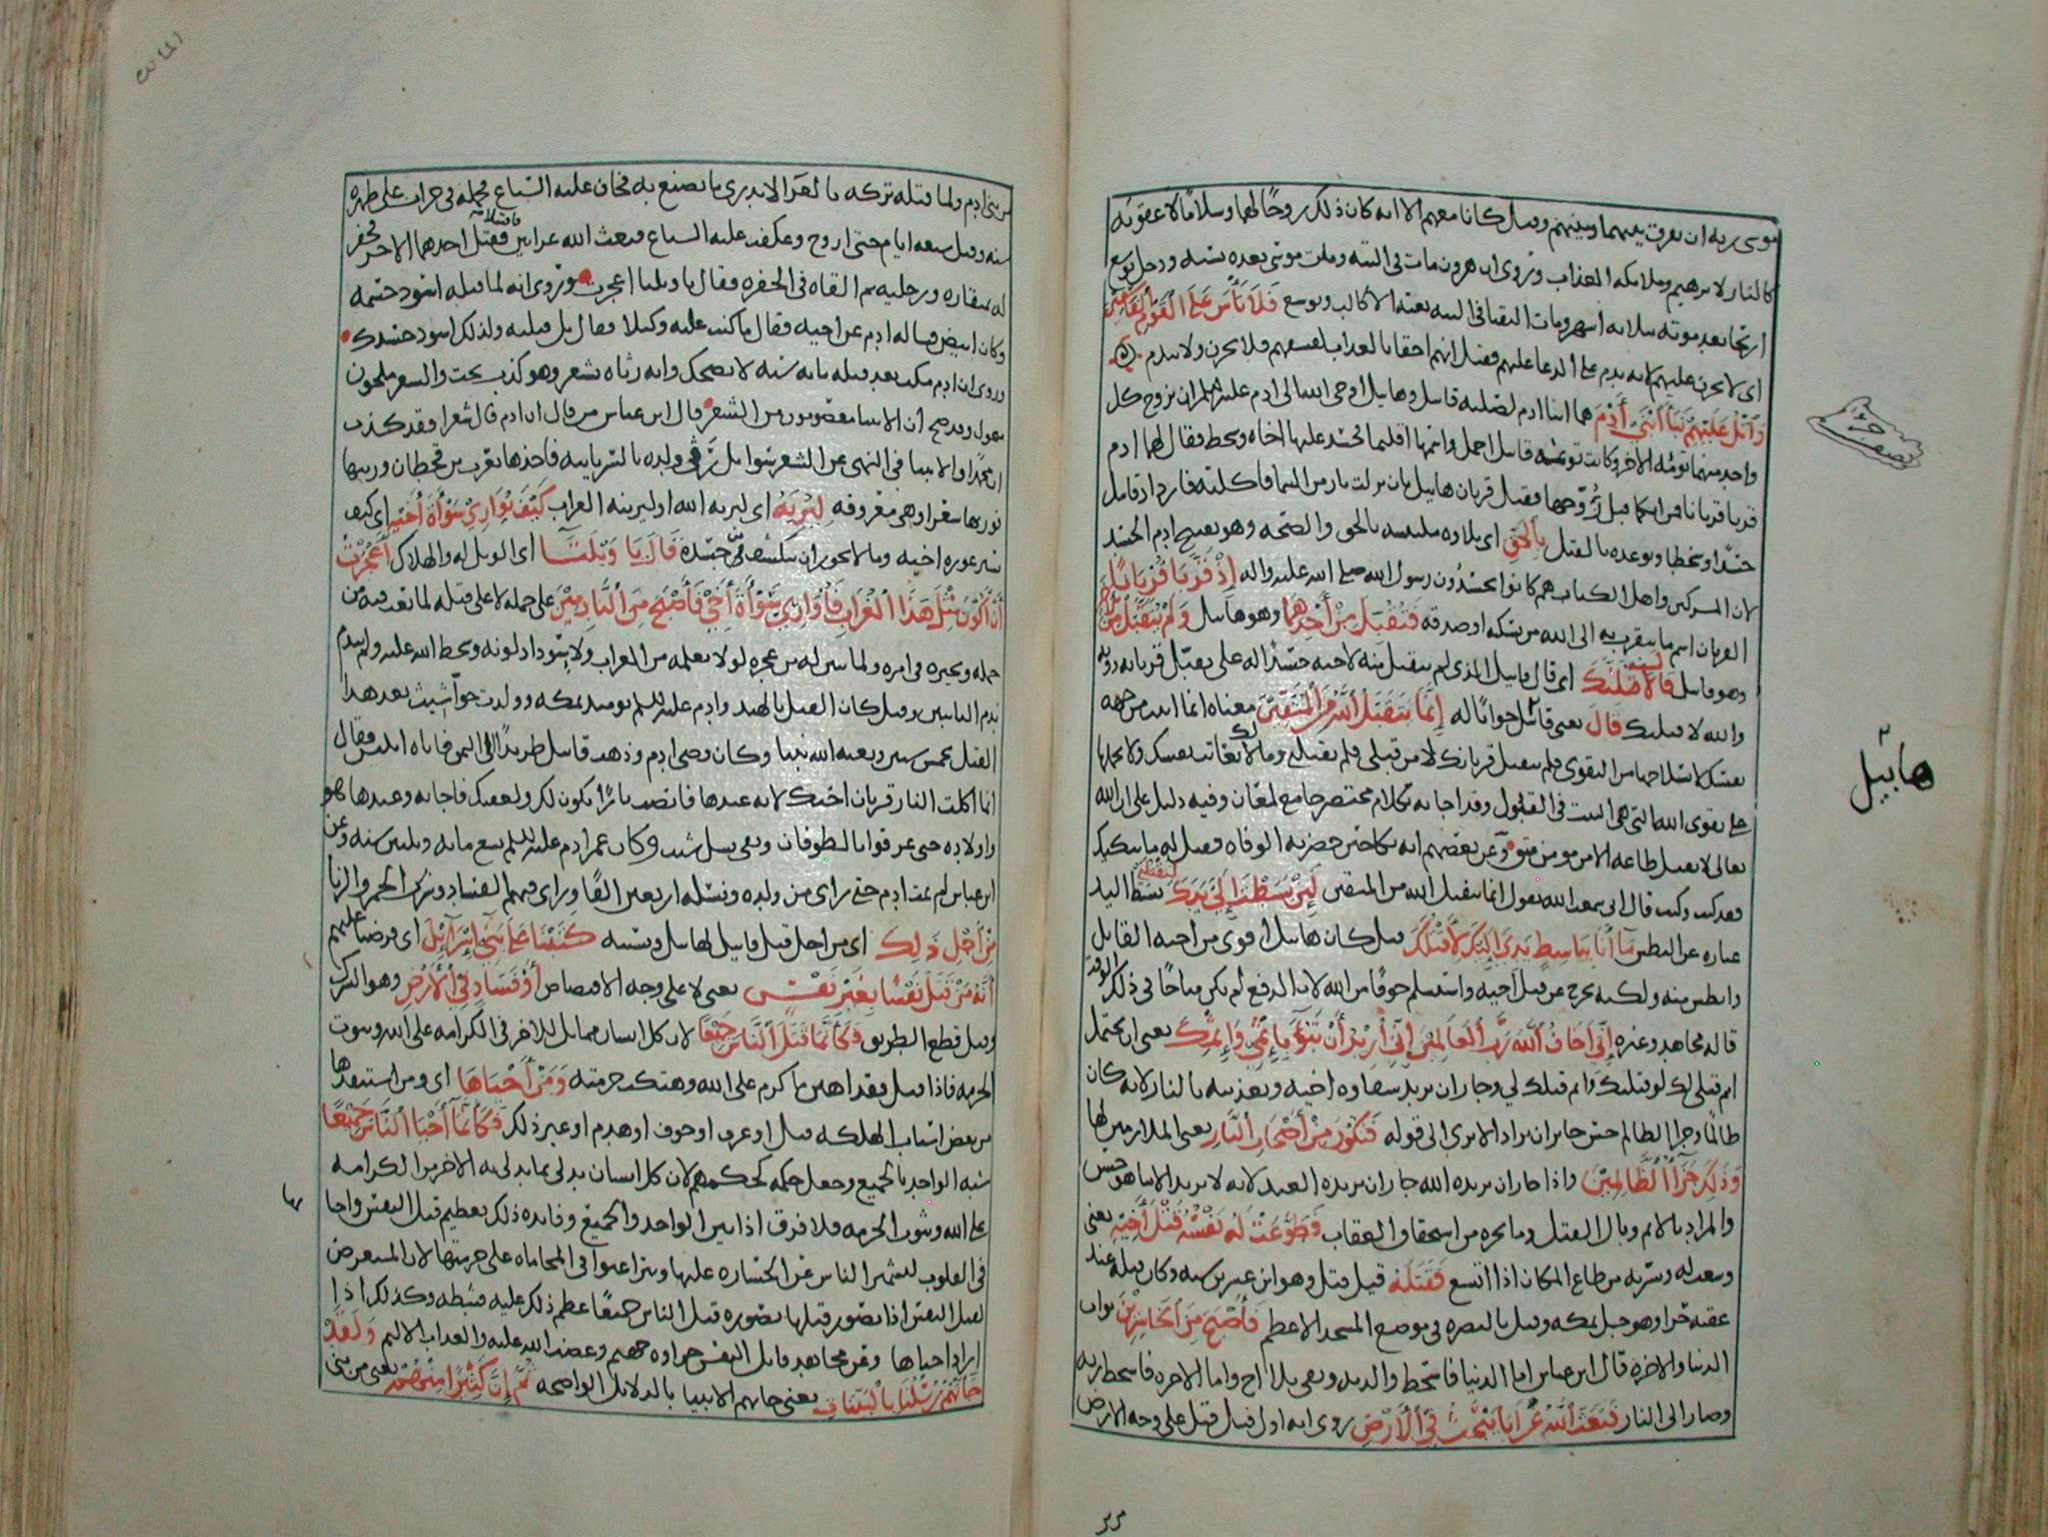 موسى ربه ان يفرق بينهما وبينهم وقيل كانا معهم الا انه كان ذلك روحًا لهما وسلامًا لا عقوبة
كالنار لابرهيم وملائكة العذاب وروى ان هرون مات في التيه ومات موسى بعده بسنة ودخل يوشع
اريحا بعد موته بثلاثة اشهر ومات النقبا في التيه بغتة الا كالب ويوشع فَلَا تَأْسَ عَلَى الْقَوْمِ الْفَاسِقِينَ
اي لا تحزن عليهم لانه ندم على الدعا عليهم فقيل انهم احقا بالعذاب لفسقهم فلا تحزن ولا تندم
وَاتْلُ عَلَيْهِمْ نَبَأَ ابْنَيْ آدَمَ هما ابنا ادم لصلبه قابيل وهابيل اوحى الله الى ادم عليه السلم ان يزوج كل
واحد منهما توئمة الاخر وكانت توئمة قابيل اجمل واسمها اقليما فحسد عليها اخاه وسخط فقال لهما ادم
قربا قربانا فمن ايكما قبل زُوّجها فقبل قربان هابيل بان نزلت نار من السما فاكلته فازداد قابيل
حسدًا وسخطا وتوعده بالقتل بِالْحَقِّ اي تلاوة ملتبسة بالحق والصحة وهو تقبيح ادم الحسد
لان المشركين واهل الكتاب هم كانوا يحسدون رسول الله صلى الله عليه واله إِذْ قَرَّبَا قُرْبَانًا
القربان اسم ما يتقرب به الى الله من نسكة او صدقة فَتُقُبِّلَ مِنْ أَحَدِهِمَا وهو هابيل وَلَمْ يُتَقَبَّلْ مِنَ الْآخَرِ
وهو قابيل قَالَ لَأَقْتُلَنَّكَ اي قال قابيل الذي لم يتقبل منه لاخيه حسدًا له على تقبل قربانه دونه
والله لاقتلنك قَالَ يعني هابيل جوابًا له إِنَّمَا يَتَقَبَّلُ اللَّهُ مِنَ الْمُتَّقِينَ معناه انما اتيت من جهة
نفسك لانسلاخها من التقوى فلم يتقبل قربانك لا من قبلي فلم تقتلني وما لك لا تعاتب نفسك ولا تحملها
على تقوى الله التي هي السبب في القبول وقد اجابه بكلام مختصر جامع لمعان وفيه دليل على ان الله
تعالى لا يقبل طاعة الا من مومن متق وعن بعضهم انه بكا حين حضرته الوفاة فقيل له ما يبكيك
فقد كنت وكنت قال اني سمعت الله يقول انما يتقبل الله من المتقين لَئِنْ بَسَطْتَ إِلَيَّ يَدَكَ لِتَقْتُلَنِي بسط اليد
عبارة عن البطش مَا أَنَا بِبَاسِطٍ يَدِيَ إِلَيْكَ لِأَقْتُلَكَ قيل كان هابيل اقوى من اخيه القاتل
وابطش منه ولكنه تحرج عن قتل اخيه واستسلم خوفًا من الله لان الدفع لم يكن مباحًا في ذلك الوقت
قاله مجاهد وغيره إِنِّي أَخَافُ اللَّهَ رَبَّ الْعَالَمِينَ إِنِّي أُرِيدُ أَنْ تَبُوءَ بِإِثْمِي وَإِثْمِكَ يعني ان تحتمل
اثم قتلي لك لو قتلتك واثم قتلك لي وجاز ان يريد شقاوة اخيه وتعذيبه بالنار لانه كان
ظالمًا وجزا الظالم حسن جايز ان يراد الا ترى الى قوله فَتَكُونَ مِنْ أَصْحَابِ النَّارِ يعني الملازمين لها
وَذَلِكَ جَزَاءُ الظَّالِمِينَ واذا جاز ان يريده الله جاز ان يريده العبد لانه لا يريد الا ما هو حسن
والمراد بالاثم وبال القتل وما يجره من استحقاق العقاب فَطَوَّعَتْ لَهُ نَفْسُهُ قَتْلَ أَخِيهِ يعني
وسعت له ويسرته من طاع المكان اذا اتسع فَقَتَلَهُ قيل قتل وهو ابن عشرين سنة وكان قتله عند
عقبة حرا وهو جبل بمكة وقيل بالبصرة في موضع المسجد الاعظم فَأَصْبَحَ مِنَ الْخَاسِرِينَ ثواب
الدنيا والاخرة قال ابن عباس اما الدنيا فاسخط والديه وبقي بلا اخ واما الاخرة فاسخط ربه
وصار الى النار فَبَعَثَ اللَّهُ غُرَابًا يَبْحَثُ فِي الْأَرْضِ روي انه اول قتيل قتل على وجه الارض
هابيل
من بني ادم ولما قتله تركه بالعرا لا يدري ما يصنع به فخاف عليه السباع فحمله في جراب على ظهره
سنة وقيل سبعة ايام حتى اروح وعكفت عليه السباع فبعث الله غرابين فاقتلا فقتل احدهما الاخر فحفر
له بمنقاره ورجليه ثم القاه في الحفرة فقال يا ويلتا اعجزت وروى انه لما قتله اسود جسمه
وكان ابيض فساله ادم عن اخيه فقال ما كنت عليه وكيلا فقال بل قتلته ولذلك اسود جسدك
وروى ان ادم مكث بعد قتله ماية سنة لا يضحك وانه رثاه بشعر وهو كذب بحت والشعر ملحون
منحول وقد صح ان الانبيا معصومون من الشعر قال ابن عباس من قال ان ادم قال شعرا فقد كذب
ان محمدًا والانبيا في النهي عن الشعر سوا بل رثى ولده بالسريانية فاخذها يعرب بن قحطان ورتبها
نورها شعرا وهي معروفة لِيُرِيَهُ اي ليريه الله او ليرينه الغراب كَيْفَ يُوَارِي سَوْأَةَ أَخِيهِ اي كيف
يستر عورة اخيه وما لا يجوز ان ينكشف من جسده قَالَ يَا وَيْلَتَا اي الويل له والهلاك أَعَجَزْتُ
أَنْ أَكُونَ مِثْلَ هَذَا الْغُرَابِ فَأُوَارِيَ سَوْأَةَ أَخِي فَأَصْبَحَ مِنَ النَّادِمِينَ على حمله لا على قتله لما تعب فيه من
حمله وتحيره في امره ولما تبين له من عجزه لولا تعلمه من الغراب ولاسوداد لونه وسخط الله عليه ولم يندم
ندم التايبين وقيل كان القتل بالهند وادم عليه السلم يوميذ بمكة وولدت حوا شيث بعد هذا
القتل بخمس سنين وبعثه الله نبيا وكان وصي ادم وذهب قابيل طريدًا الى اليمن فاتاه ابليس فقال
انما اكلت النار قربان اخيك لانه عبدها فانصب نارًا تكون لك ولعقبك فاجابه وعبدها هو
واولاده حتى غرقوا بالطوفان وبقي نسل شيث وكان عمر ادم عليه السلم تسع ماية وثلثين سنة وعن
ابن عباس لم يمت ادم حتى راى من ولده ونسله اربعين الفًا وراى فيهم الفساد وشرب الخمر والزنا
مِنْ أَجْلِ ذَلِكَ اي من اجل قتل قابيل لهابيل وبسببه كَتَبْنَا عَلَى بَنِي إِسْرَائِيلَ اي فرضنا عليهم
أَنَّهُ مَنْ قَتَلَ نَفْسًا بِغَيْرِ نَفْسٍ يعني لا على وجه الاقتصاص أَوْ فَسَادٍ فِي الْأَرْضِ وهو الشرك
وقيل قطع الطريق فَكَأَنَّمَا قَتَلَ النَّاسَ جَمِيعًا لان كل انسان مماثل للاخر في الكرامة على الله وثبوت
الحرمة فاذا قتل فقد اهين ما كرم على الله وهتكت حرمته وَمَنْ أَحْيَاهَا اي ومن استنقذها
من بعض اسباب الهلكة قتل او غرق او حرق او هدم او غير ذلك فَكَأَنَّمَا أَحْيَا النَّاسَ جَمِيعًا
شبه الواحد بالجميع وجعل حكمه كحكمهم لان كل انسان يدلي بما يدلي به الاخر من الكرامة
على الله وثبوت الحرمة فلا فرق اذا بين الواحد والجميع وفايدة ذلك تعظيم قتل النفس واحيا
في القلوب ليشمئز الناس عن الجسارة عليها ويتراغبوا في المحاماة على حرمتها لان المتعرض
لقتل النفس اذا تصور قتلها بصورة قتل الناس جميعًا عظم ذلك عليه فثبطه وكذلك اذا
اراد احياها وعن مجاهد قاتل النفس جزاوه جهنم وغضب الله عليه والعذاب الاليم وَلَقَدْ
جَاءَتْهُمْ رُسُلُنَا بِالْبَيِّنَاتِ يعني جاتهم الانبيا بالدلايل الواضحة ثُمَّ إِنَّ كَثِيرًا مِنْهُمْ يعني من بني